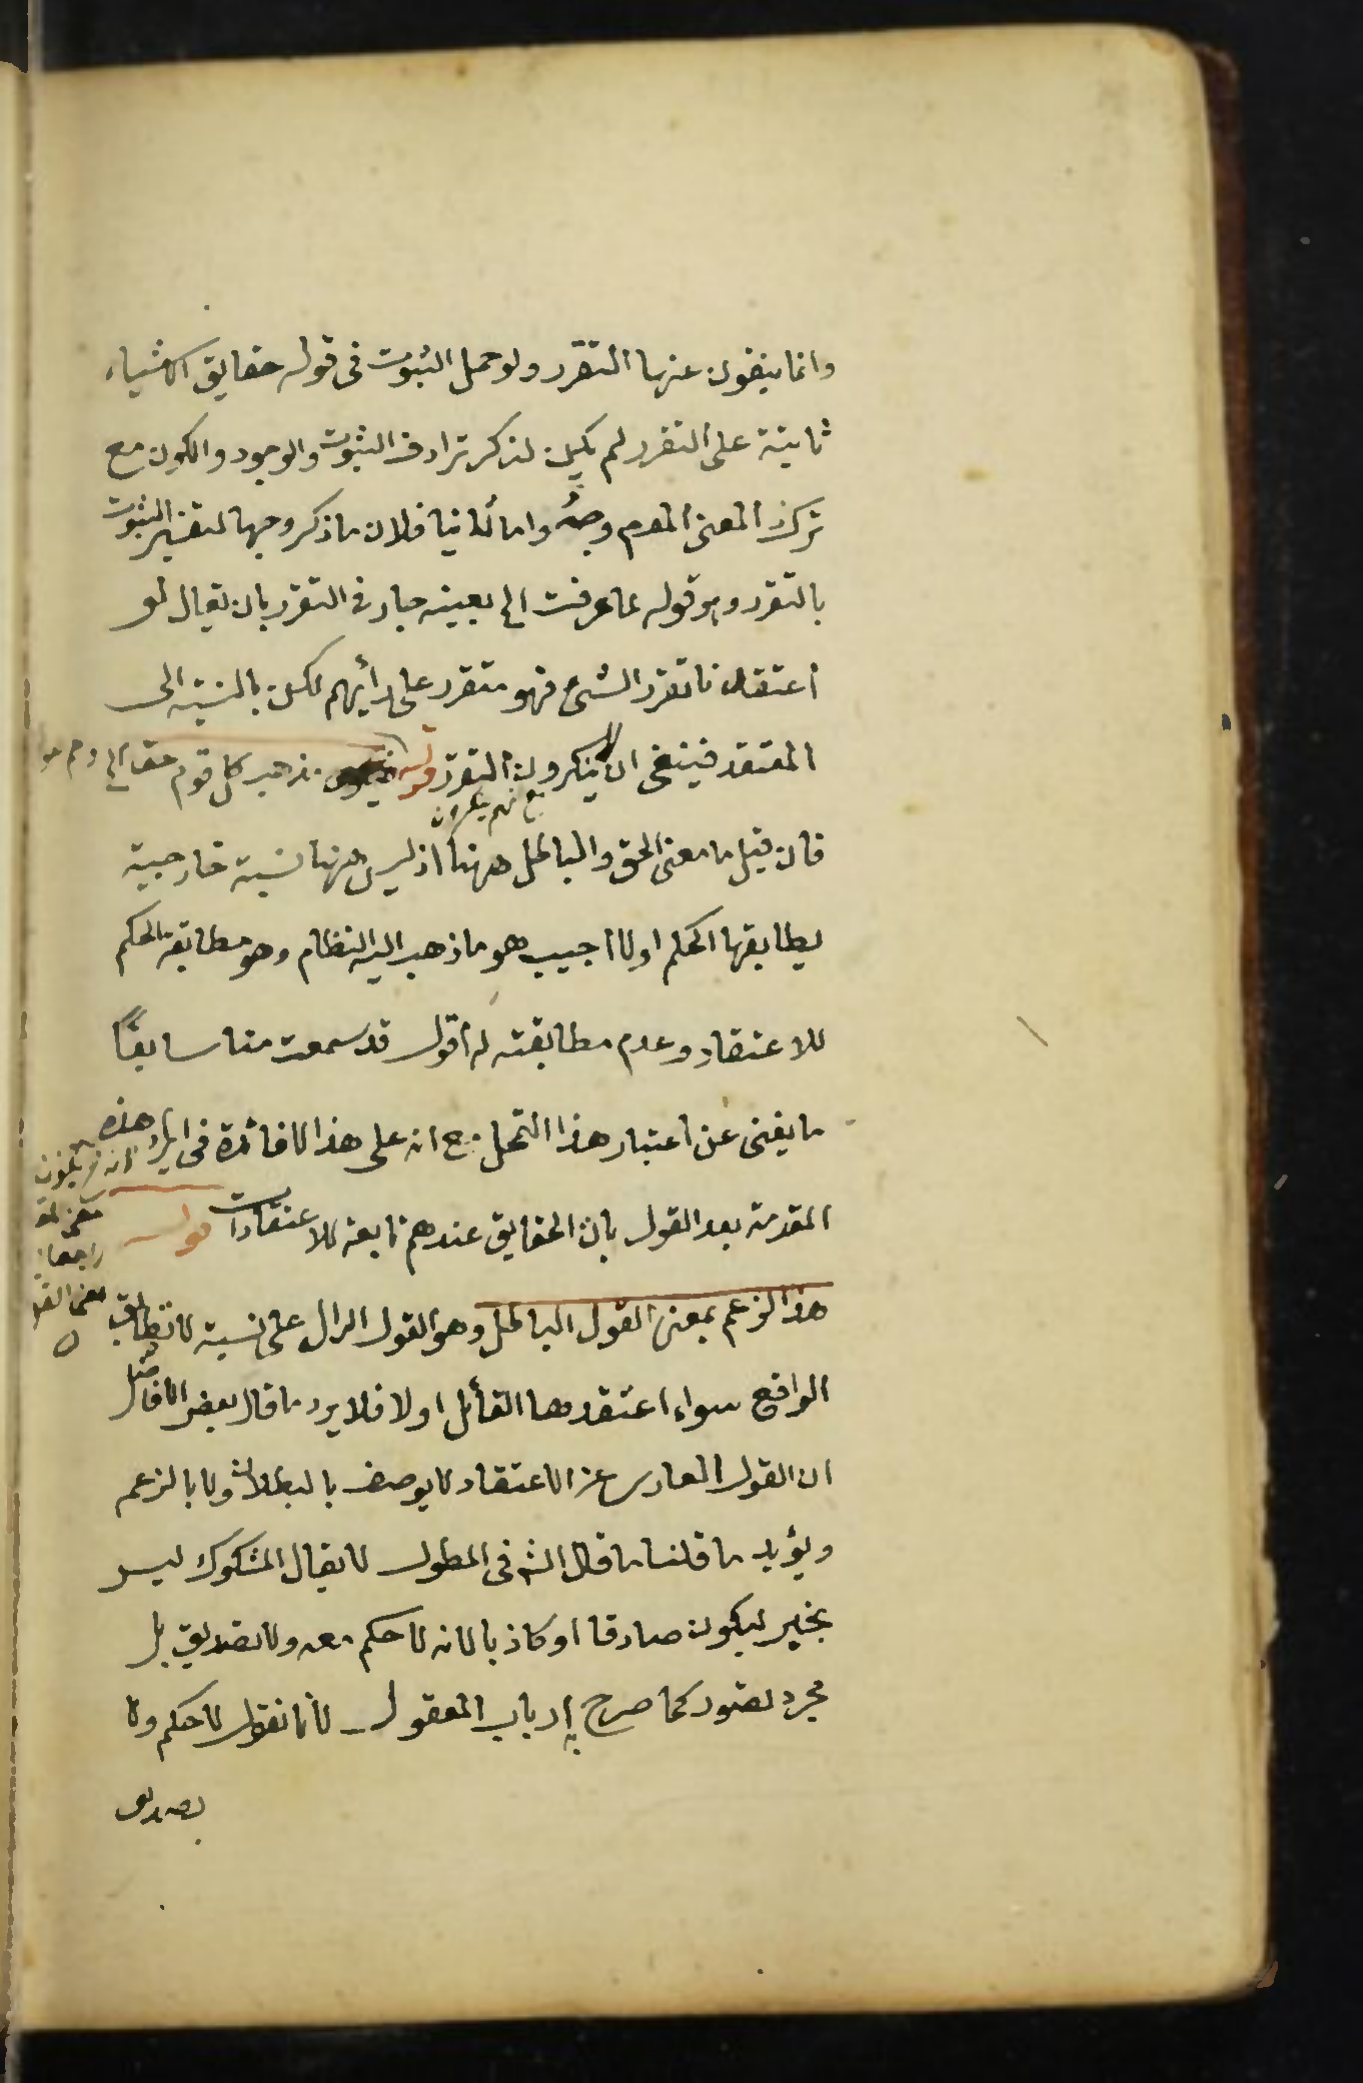 وانما ينفون عنها التقرر ولو حمل الثبوت فى قوله حقايق الاشياء
ثابتة على التقرر لم يكن لذكر ترادف الثبوت والوجود والكون مع
ترك المعنى المعدم وجهٌ واما ثانيا فلان ما ذكر وجها لتفسير الثبوت
بالتقرر وهو قوله لما عرفت الخ بعينه جار فى التقرر بان يقال لو
اعتقدنا تقرر الشئ فهو متقرر على رأيهم لكن بالنسبة الى
المعتقد فينبغى ان لا ينكرون التقرر قوله مذهب كل قوم حق الخ
مع انهم ينكرون
فان قيل ما معنى الحق والباطل ههنا اذ ليس ههنا نسبة خارجية
يطابقها الحكم اولا اجيب هو ما ذهب اليه النظام وهو مطابقة الحكم
للاعتقاد وعدم مطابقته له اقول قد سمعت منا سابقًا
ما يغنى عن اعتبار هذا التمحل مع انه على هذا لا فائدة فى ايراد هذه
المقدمة بعد القول بان الحقايق عندهم تابعة للاعتقادات قوله
هذا الزعم بمعنى القول الباطل وهو القول الدال على نسبة لا تطابق
الواقع سواء اعتقدها القائل اولا فلا يرد ما قال بعض الافاضل
ان القول العارى عن الاعتقاد لا يوصف بالبطلان ولا بالزعم
ويؤيد ما قلنا ما قال الش فى المطول لا يقال المشكوك ليس
بخبر ليكون صادقا او كاذبا لانه لا حكم معه ولا تصديق بل
مجرد تصور كما صرح به ارباب المعقول لانا نقول لا حكم ولا
تصديق